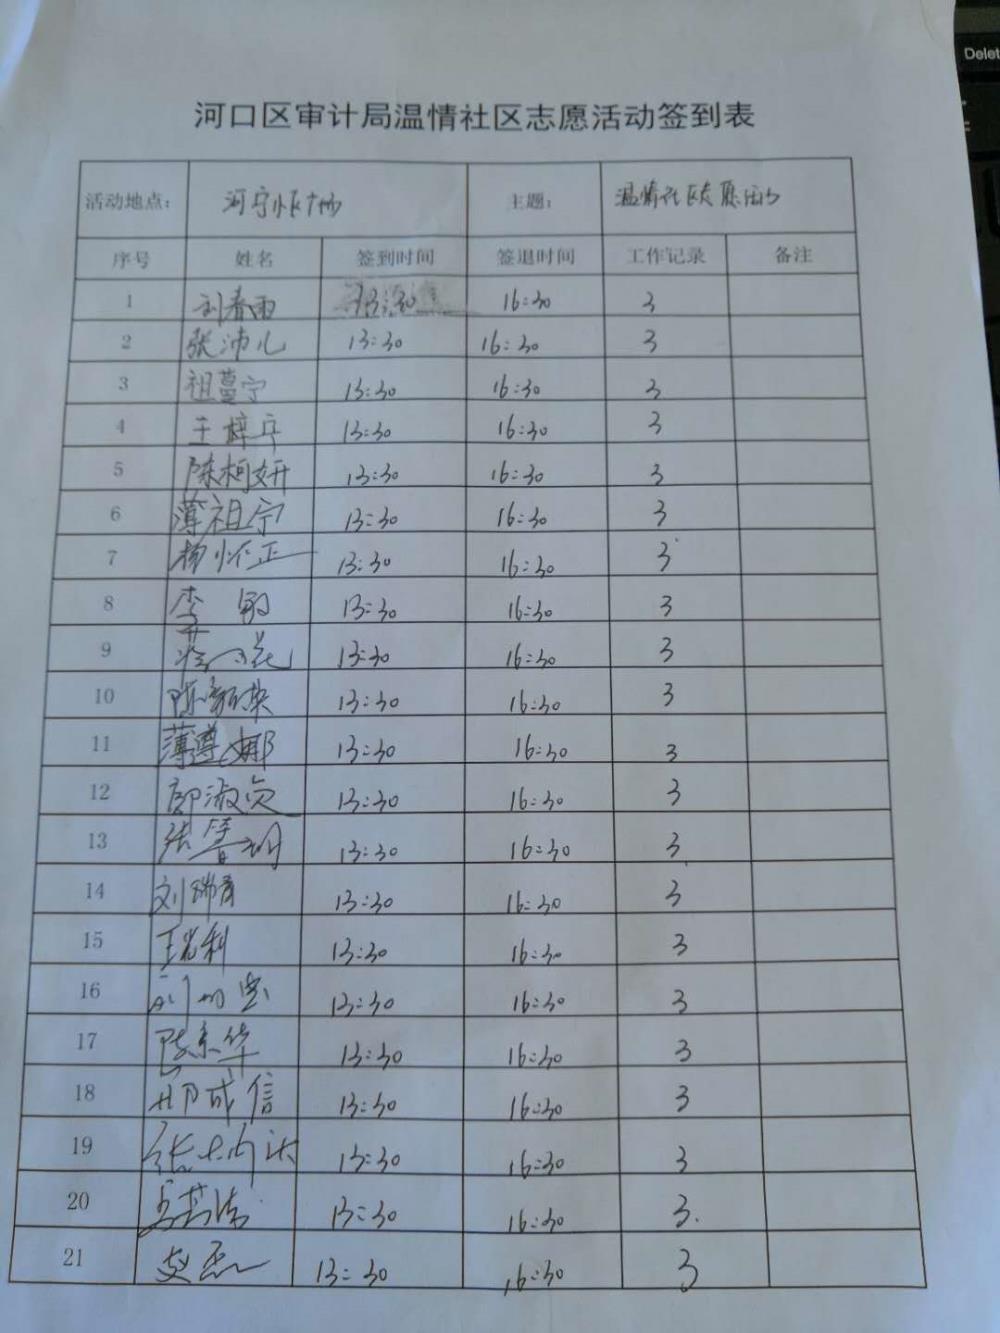 Delet
河口区审计局温情社区志愿活动签到表
活动地点: 主题: 温情社区志愿活动
序号 姓名 签到时间 签退时间 工作记录 备注
1 刘春雨 13:30 16:30 3
2 张沛儿 13:30 16:30 3
3 祖蔓宁 13:30 16:30 3
4 王梓宁 13:30 16:30 3
5 陈柯妍 13:30 16:30 3
6 薄祖宁 13:30 16:30 3
7 杨怀正 13:30 16:30 3
8 李敏 13:30 16:30 3
9 13:30 16:30 3
10 13:30 16:30 3
11 薄遵娜 13:30 16:30 3
12 邵淑贞 13:30 16:30 3
13 13:30 16:30 3
14 刘瑞青 13:30 16:30 3
15 13:30 16:30 3
16 13:30 16:30 3
17 13:30 16:30 3
18 邢成信 13:30 16:30 3
19 13:30 16:30 3
20 13:30 16:30 3.
21 赵磊 13:30 16:30 3